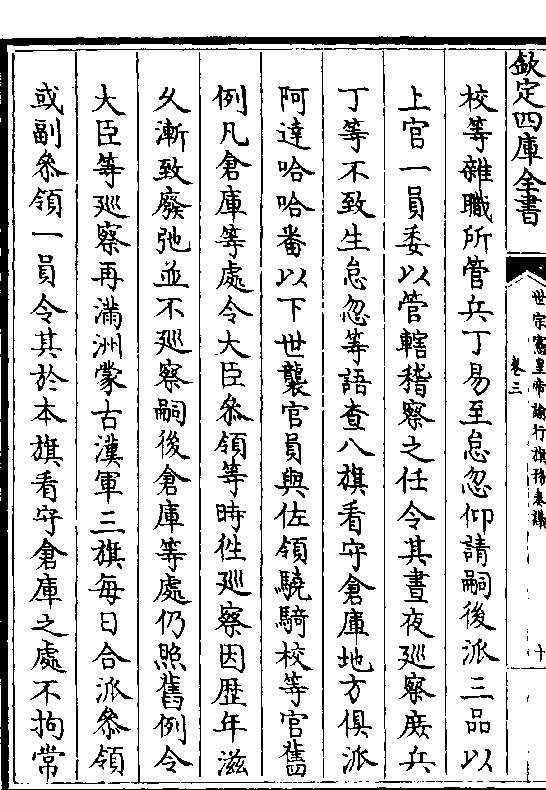 欽定四庫全書
世宗憲皇帝諭行旗務奏議
卷三
十
校等雜職所管兵丁易至怠忽仰請嗣後派三品以
上官一員委以管轄稽察之任令其晝夜廵察庶兵
丁等不致生怠忽等語查八旗看守倉庫地方俱派
阿達哈哈番以下世襲官員與佐領驍騎校等官舊
例凡倉庫等處令大臣叅領等時徃廵察因歴年滋
久漸致廢弛並不廵察嗣後倉庫等處仍照舊例令
大臣等廵察再滿洲蒙古漢軍三旗每日合派叅領
或副叅領一員令其於本旗看守倉庫之處不拘常